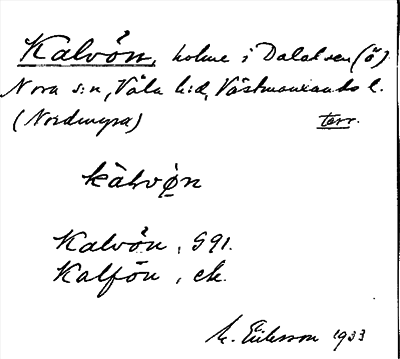 Kalvön, holme i Dalälven (ö)
Nora s:n, Våla h:d, Västmanlands l.
(Nordmyra) terr.
kàlvö̀n
Kalvön, GS 91.
Kalfön, ek.
M. Eriksson 1933